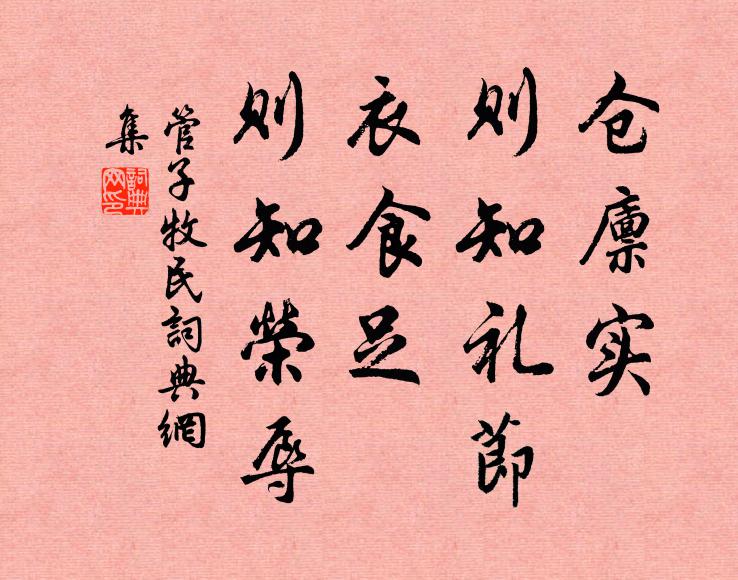 仓廪实
则知礼節
衣食足
则知榮辱
管子牧民詞典網
集
詞典
网印